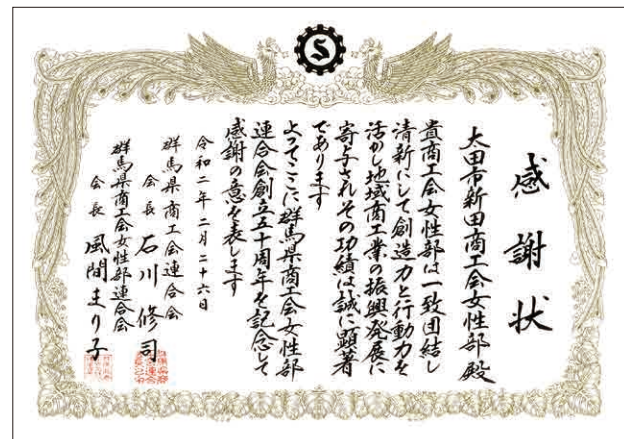 感謝状
太田市新田商工会女性部殿
貴商工会女性部は一致団結し
清新にして創造力と行動力を
活かし地域商工業の振興発展に
寄与されその功績は誠に顕著
であります
よってここに群馬県商工会女性部
連合会創立五十周年を記念して
感謝の意を表します
令和二年二月二十六日
群馬県商工会連合会
会長 石川修司
群馬県商工会女性部連合会
会長 風間まり子
S